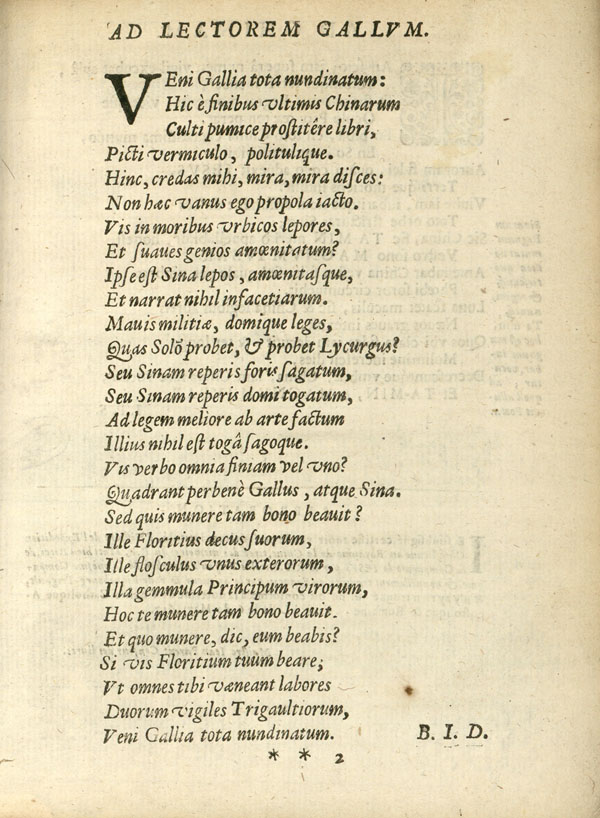 AD LECTOREM GALLVM.
VEni Gallia tota nundinatum:
Hic è finibus vltimis Chinarum
Culti pumice prostitêre libri,
Picti vermiculo, politulique.
Hinc, credas mihi, mira, mira disces:
Non hæc vanus ego propola iacto.
Vis in moribus vrbicos lepores,
Et suaues genios amœnitatum?
Ipse est Sina lepos, amœnitasque,
Et narrat nihil infacetiarum.
Mauis militiæ, domique leges,
Quas Solõ probet, & probet Lycurgus?
Seu Sinam reperis foris sagatum,
Seu Sinam reperis domi togatum,
Ad legem meliore ab arte factum
Illius nihil est togâ sagoque.
Vis verbo omnia finiam vel vno?
Quadrant perbenè Gallus, atque Sina.
Sed quis munere tam bono beauit?
Ille Floritius decus suorum,
Ille flosculus vnus exterorum,
Illa gemmula Principum virorum,
Hoc te munere tam bono beauit.
Et quo munere, dic, eum beabis?
Si vis Floritium tuum beare;
Vt omnes tibi væneant labores
Duorum vigiles Trigaultiorum,
Veni Gallia tota nundinatum. B. I. D.
* * 2